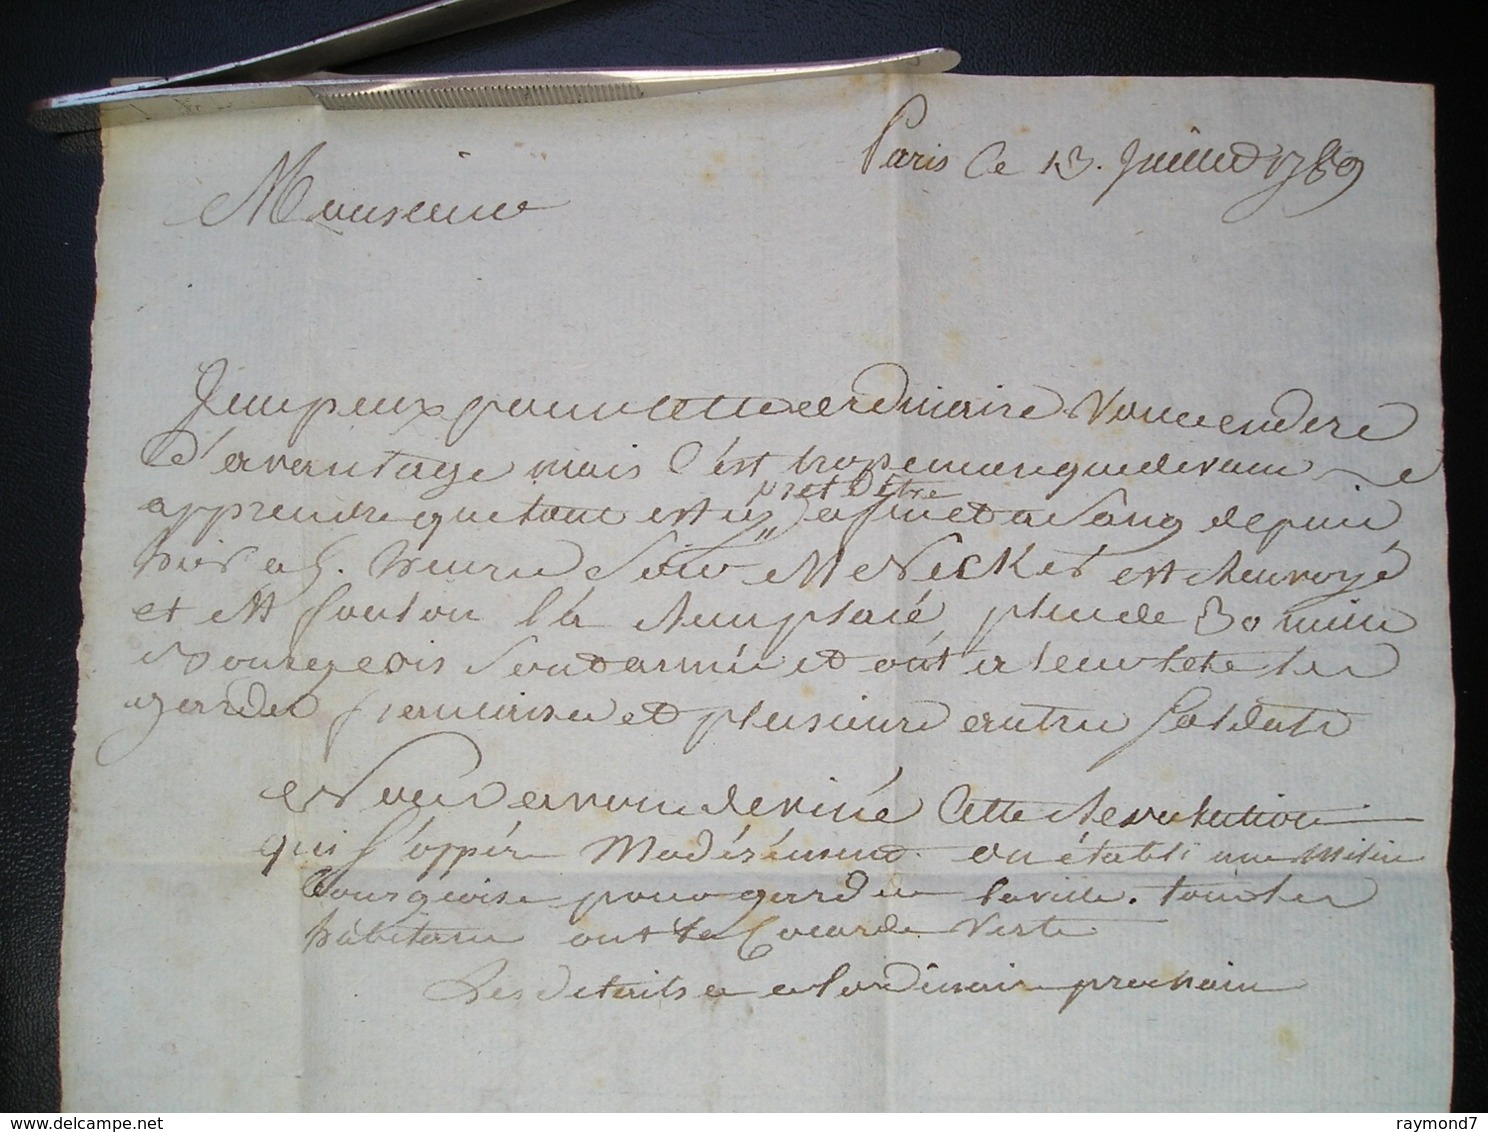 Paris Ce 13. Juillet 1789
Monsieur
Je ne peux pour cette ordinaire vous endire
d'avantage mais C'est trop manquer de vous
pret detre
apprendre que tout est icy afeu et a Sang depuis
hier a 5. heures Soir Mr Necker est Renvoyé
et Mr foulon l'a Remplacé, plus de 30 mille
Bourgeois Sont armés et ont a leur tete les
gardes francaises et plusieurs autres Soldats
Nous avons deviné Cette Revolution
qui S'oppére Modérément. on établi une Milice
bourgeoise pour garder la ville. tous les
habitans ont la Cocarde Verte
Les details a lordinaire prochain
raymond7